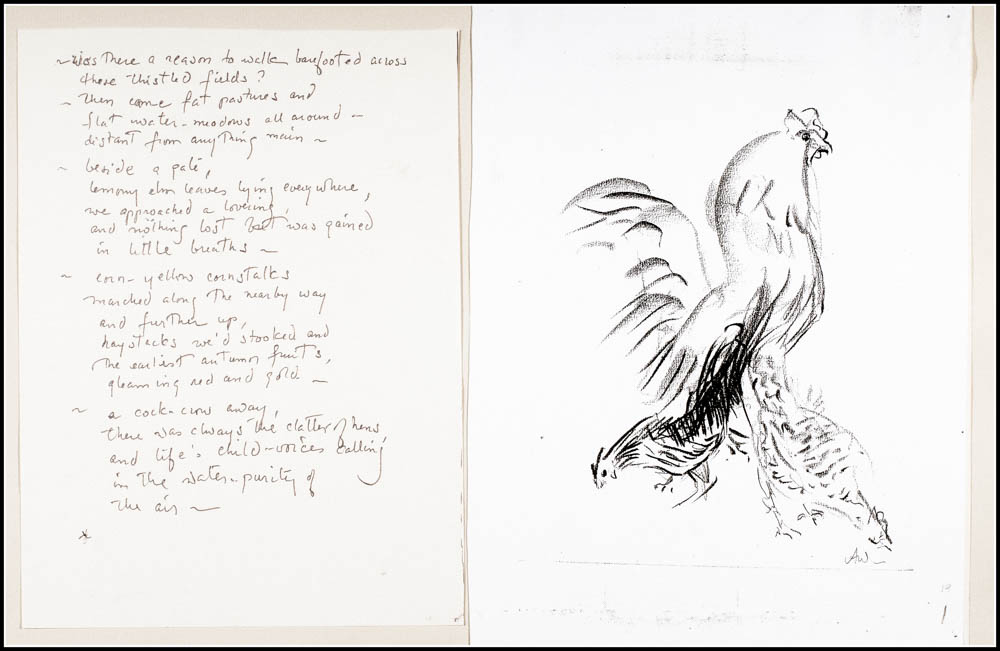 ~ was there a reason to walk barefooted across
these thistled fields?
~ then came fat pastures and
flat water-meadows all around –
distant from anything main ~
~ beside a gate,
lemony elm leaves lying everywhere,
we approached a lovering,
and nothing lost but was gained
in little breaths ~
~ corn-yellow cornstalks
marched along the nearby way
and further up,
haystacks we'd stooked and
the earliest autumn fruits,
gleaming red and gold –
~ a cock-crow away,
there was always the clatter of hens,
and life's child-voices calling
in the water-purity of
the air ~
*
AW